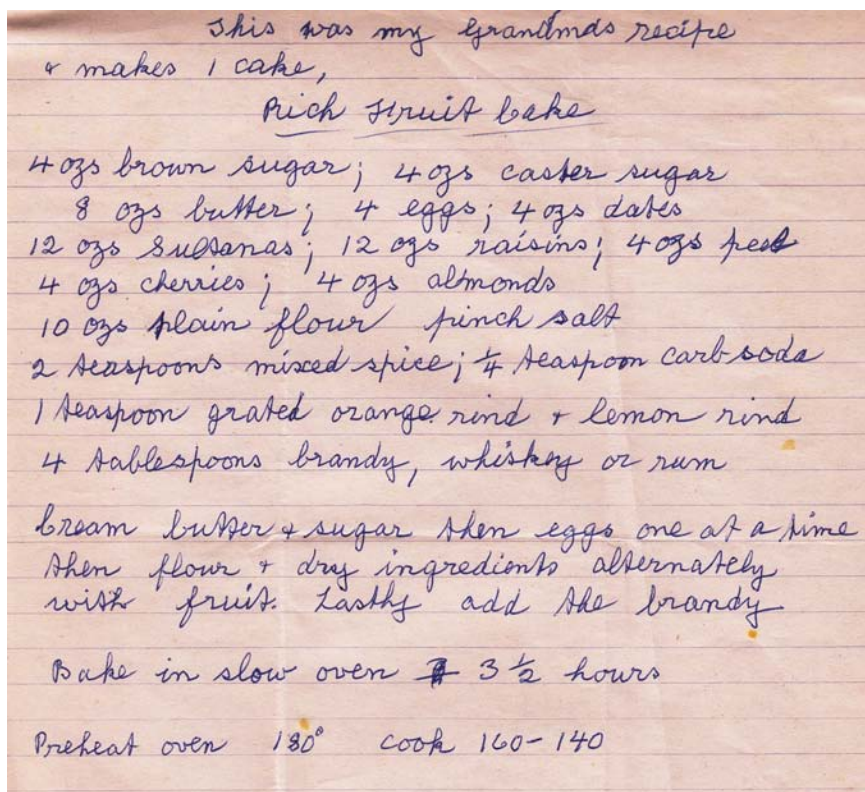 This was my Grandmas recipe
& makes 1 cake,
Rich Fruit Cake
4 ozs brown sugar; 4 ozs caster sugar
8 ozs butter; 4 eggs; 4 ozs dates
12 ozs Sultanas; 12 ozs raisins; 4 ozs peel
4 ozs cherries; 4 ozs almonds
10 ozs plain flour pinch salt
2 teaspoons mixed spice; 1/4 teaspoon carb soda
1 teaspoon grated orange rind & lemon rind
4 tablespoons brandy, whiskey or rum
Cream butter & sugar then eggs one at a time
then flour & dry ingredients alternately
with fruit. Lastly add the brandy
Bake in slow oven 3 1/2 hours
Preheat oven 180° cook 160-140